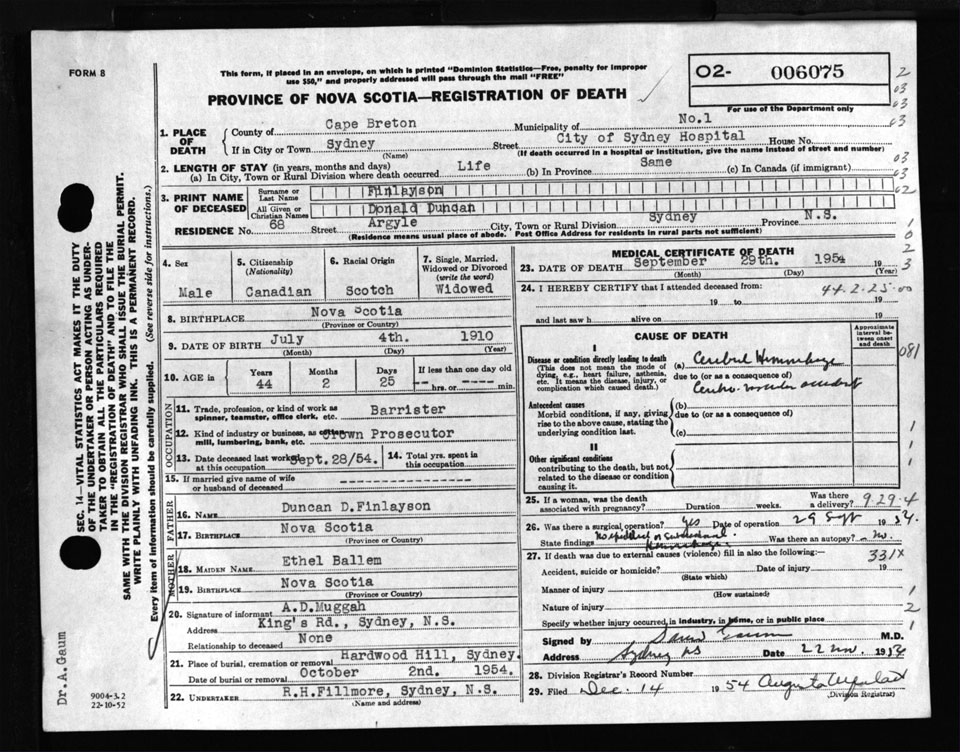 FORM 8
This form, if placed in an envelope, on which is printed "Dominion Statistics—Free, penalty for improper
use $50," and properly addressed will pass through the mail "FREE"
PROVINCE OF NOVA SCOTIA—REGISTRATION OF DEATH
02- 006075
For use of the Department only
2
03
03
03
1. PLACE OF DEATH
County of Cape Breton Municipality of No.1
If in City or Town Sydney Street City of Sydney Hospital House No.
(Name) (If death occurred in a hospital or institution, give the name instead of street and number)
2. LENGTH OF STAY (in years, months and days)
(a) In City, Town or Rural Division where death occurred Life (b) In Province Same (c) In Canada (if immigrant)
03
03
3. PRINT NAME OF DECEASED
Surname or Last Name Finlayson
02
All Given or Christian Names Donald Duncan
RESIDENCE No. 68 Street Argyle City, Town or Rural Division Sydney Province N.S.
(Residence means usual place of abode. Post Office Address for residents in rural parts not sufficient)
1
0
2
3
4. Sex
Male
5. Citizenship
(Nationality)
Canadian
6. Racial Origin
Scotch
7. Single, Married,
Widowed or Divorced
(write the word)
Widowed
8. BIRTHPLACE Nova Scotia
(Province or Country)
9. DATE OF BIRTH July 4th. 1910
(Month) (Day) (Year)
10. AGE in
Years Months Days If less than one day old
44 2 25 -- hrs. or -- min.
OCCUPATION
11. Trade, profession, or kind of work as
spinner, teamster, office clerk, etc. Barrister
12. Kind of industry or business, as cotton
mill, lumbering, bank, etc. Crown Prosecutor
13. Date deceased last worked
at this occupation Sept.28/54.
14. Total yrs. spent in
this occupation
15. If married give name of wife
or husband of deceased
FATHER
16. NAME Duncan D.Finlayson
17. BIRTHPLACE Nova Scotia
(Province or Country)
MOTHER
18. MAIDEN NAME Ethel Ballem
19. BIRTHPLACE Nova Scotia
(Province or Country)
20. Signature of informant A.D.Muggah
Address King's Rd., Sydney, N.S.
Relationship to deceased None
21. Place of burial, cremation or removal Hardwood Hill, Sydney.
Date of burial or removal October 2nd. 1954.
22. UNDERTAKER R.H.Fillmore, Sydney, N.S.
(Name and Address)
MEDICAL CERTIFICATE OF DEATH
23. DATE OF DEATH September 29th. 1954 19
(Month) (Day) (Year)
24. I HEREBY CERTIFY that I attended deceased from:
44-2-25-00
19 to 19
and last saw h alive on 19
CAUSE OF DEATH
Approximate
interval between onset
and death
I
Disease or condition directly leading to death
(This does not mean the mode of
dying, e.g., heart failure, asthenia,
etc. It means the disease, injury, or
complication which caused death.)
(a) Cerebral Hemorrhage
due to (or as a consequence of)
accident
081
Antecedent causes
Morbid conditions, if any, giving
rise to the above cause, stating the
underlying condition last.
(b)
due to (or as a consequence of)
(c)
1
II
Other significant conditions
contributing to the death, but not
related to the disease or condition
causing it.
1
25. If a woman, was the death
associated with pregnancy? Duration weeks. Was there
a delivery?
9-29-4
26. Was there a surgical operation? Yes Date of operation 29 Sept 1954.
State findings Was there an autopsy? no
27. If death was due to external causes (violence) fill in also the following:—
331X
Accident, suicide or homicide? Date of injury 19
(State which)
Manner of injury
(How sustained)
1
Nature of injury
2
Specify whether injury occurred in industry, in home, or in public place
1
Signed by M.D.
Address Sydney NS Date 22 1954
28. Division Registrar's Record Number
29. Filed Dec. 14 1954
(Division Registrar)
SEC. 14—VITAL STATISTICS ACT MAKES IT THE DUTY
OF THE UNDERTAKER OR PERSON ACTING AS UNDER-
TAKER TO OBTAIN ALL THE PARTICULARS REQUIRED
IN THE "REGISTRATION OF DEATH" AND TO FILE THE
SAME WITH THE DIVISION REGISTRAR WHO SHALL ISSUE THE BURIAL PERMIT.
WRITE PLAINLY WITH UNFADING INK. THIS IS A PERMANENT RECORD.
Every item of information should be carefully supplied. (See reverse side for instructions.)
Dr. A. Gaum
9004-3.2
22-10-52